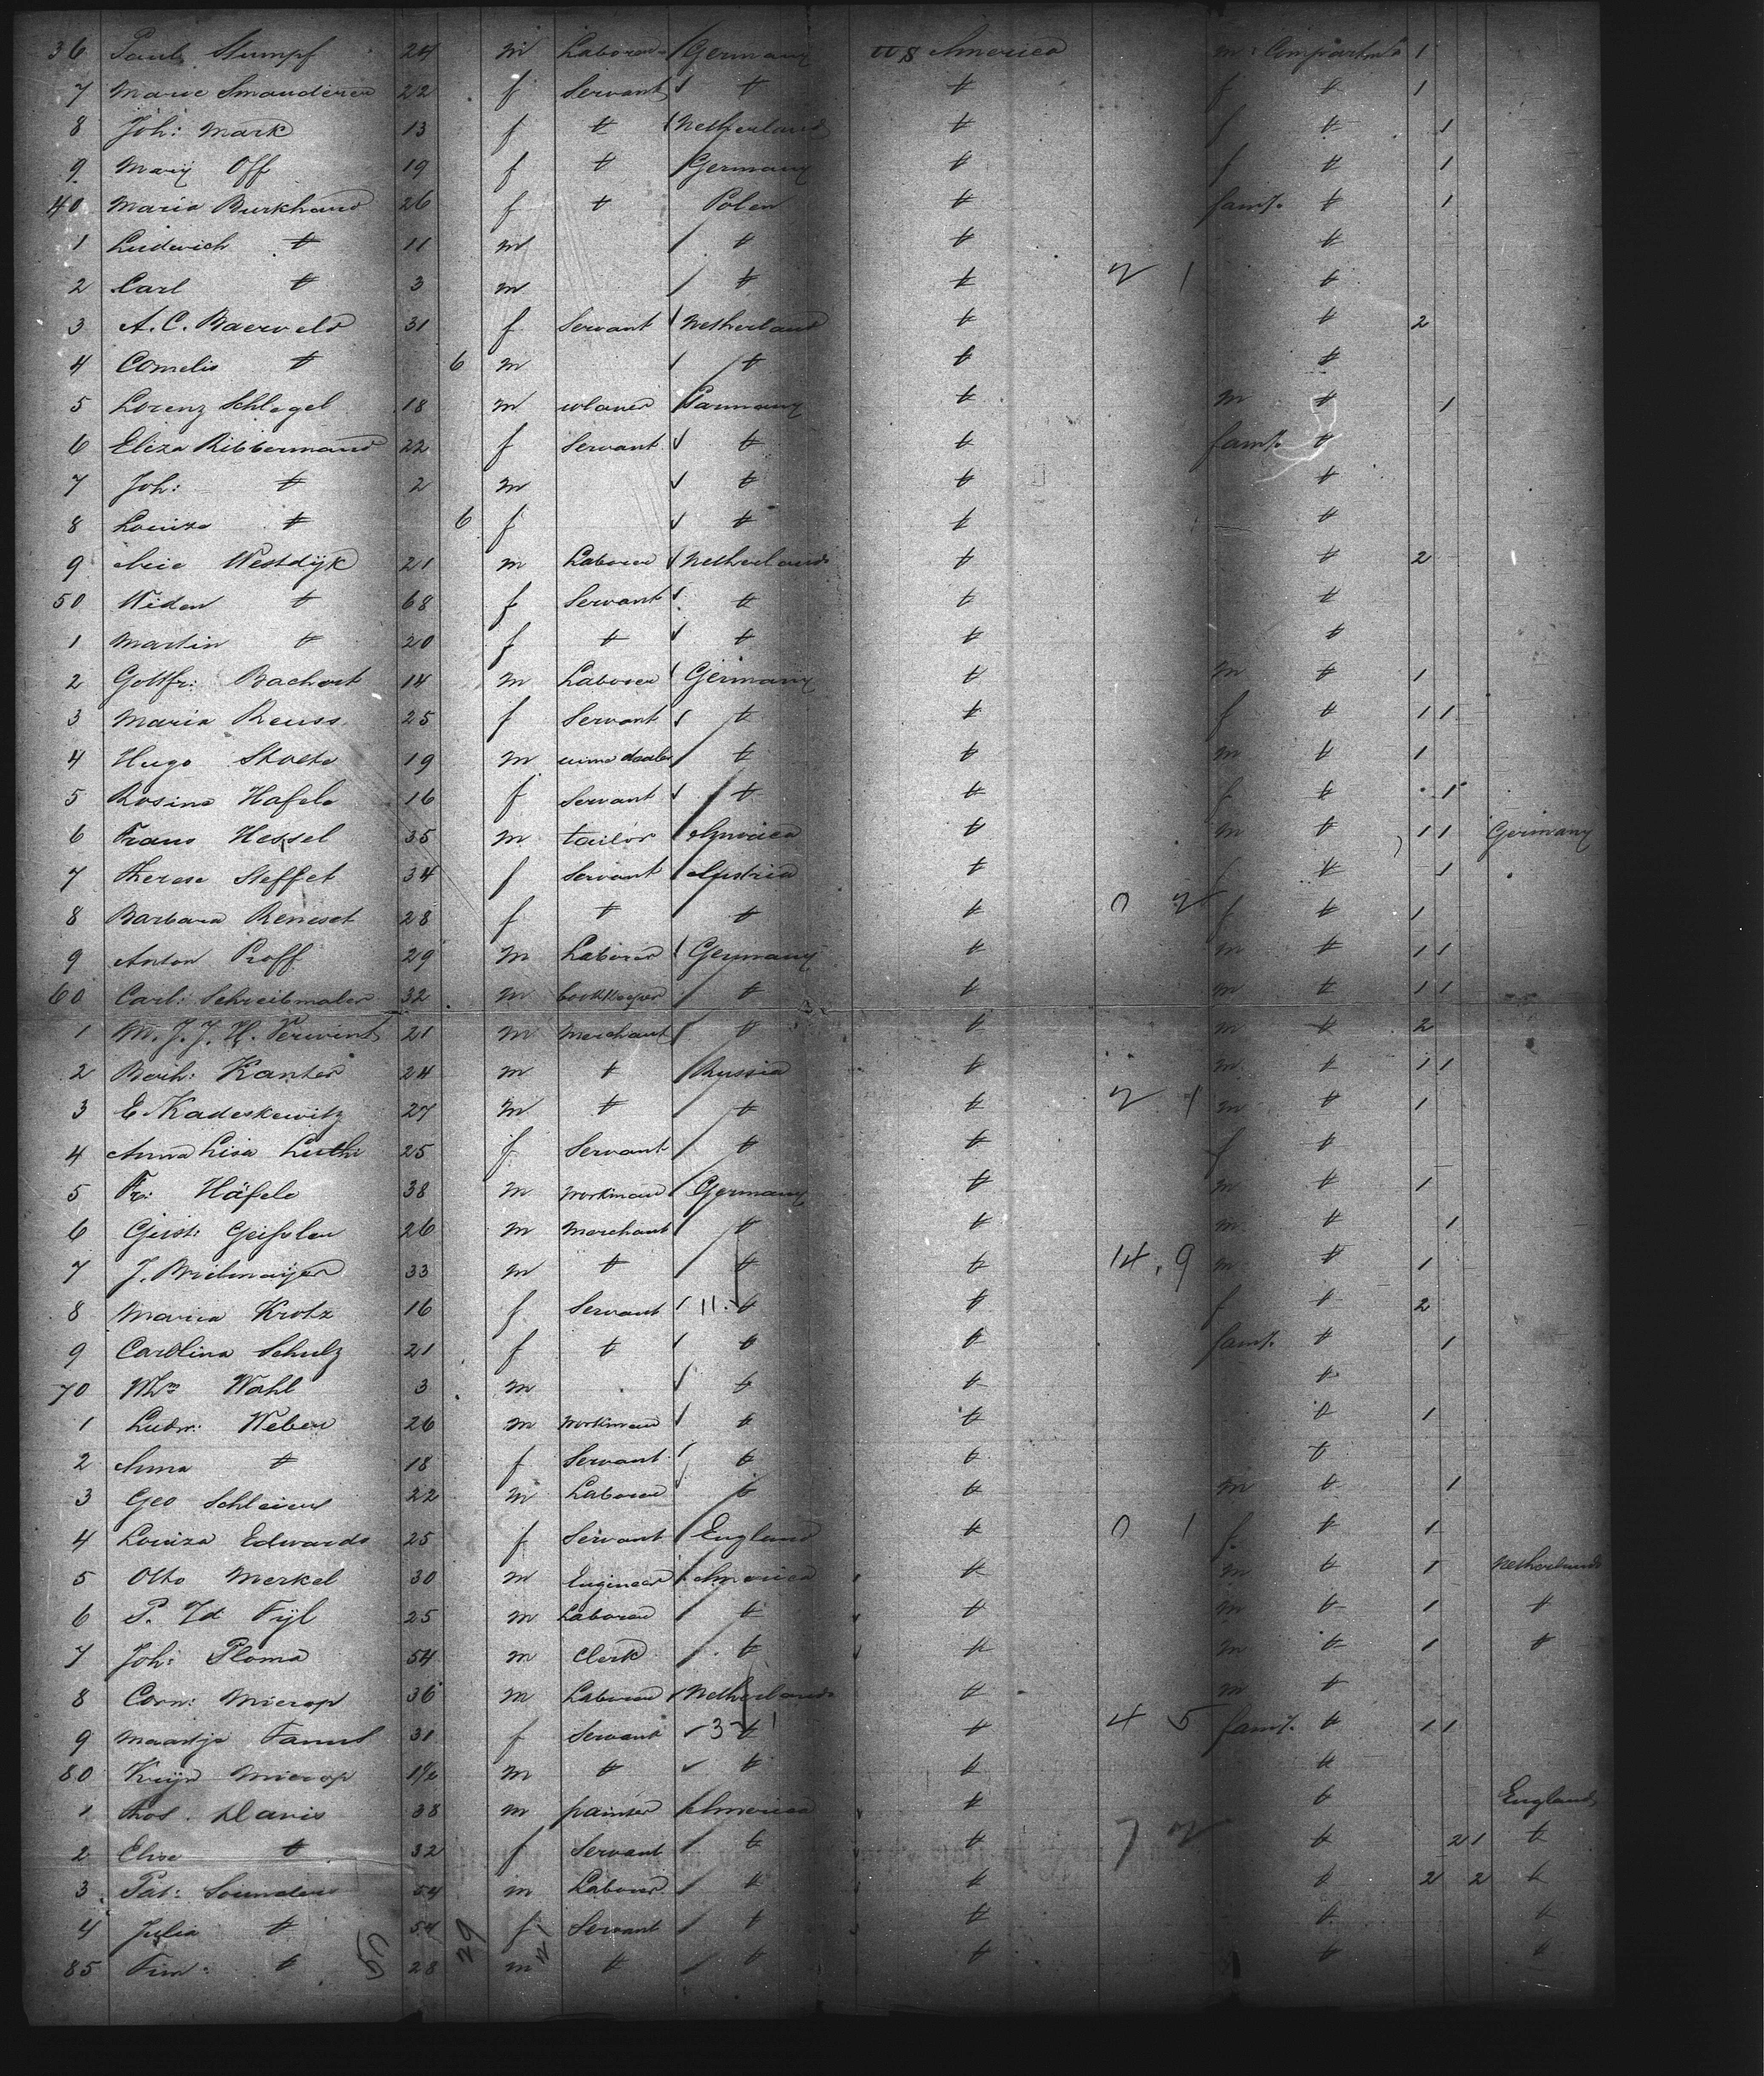 36 Paul Stumpf 24 m Laborer Germany U S America m: Compartm 1
7 Marie 22 f Servant " " f " 1
8 Joh: Mark 13 f " Netherland " f " 1
9 Mary Off 19 f " Germany " f " 1
40 Maria Burkhand 26 f " Polen " fam. " 1
1 Ludwich " 11 m " " "
2 Carl " 3 m " " 2 1 "
3 A. C. Baerveld 31 f Servant Netherland " " 2
4 Cornelis " 6 m " " "
5 Lorenz Schlegel 18 m Germany " m " 1
6 Eliza Ribbermand 22 f Servant " " fam. "
7 Joh: " 2 m " " "
8 Louiza " 6 f " " "
9 Arie Westdijk 21 m Laborer Netherlands " " 2
50 " 68 f Servant " " "
1 Martin " 20 f " " " "
2 Gottfr: Bachert 14 m Laborer Germany " m " 1
3 Maria Reuss 25 f Servant " " f " 1 1
4 Hugo 19 m " " m " 1
5 Rosina Hafele 16 f Servant " " f " 1
6 Frans Hessel 35 m tailor America " m " 1 1 Germany
7 Therese Steffet 34 f Servant Austria " f " 1
8 Barbara 28 f " " " 0 2 f " 1
9 Anton Proff 29 m Laborer Germany " m " 1 1
60 Carl: Schreibmaler 32 m bookkeeper " " m " 1 1
1 M. J. J. H. 21 m Merchant " " m " 2
2 Kanter 24 m " Russia " m " 1 1
3 E. Kadeskewitz 27 m " " " 2 1 m " 1
4 Anna Lisa 25 f Servant " " f "
5 Fr: Häfele 38 m workman Germany " m " 1
6 26 m Merchant " " m " 1
7 J. 33 m " " " 14, 9 m " 1
8 Maria Krotz 16 f Servant 11 " " f " 2
9 Carolina Schulz 21 f " " " fam. " 1
70 Wm Wahl 3 m " " "
1 Ludw: Weber 26 m workman " " " 1
2 Anna " 18 f Servant " " "
3 Geo 22 m Laborer " " m " 1
4 Louiza Edwards 25 f Servant England " 0 1 f " 1
5 Otto Merkel 30 m Engineer America " m " 1 Netherlands
6 P. 25 m Laborer " " m " 1 "
7 Joh: Ploma 54 m Clerk " " m " 1 "
8 Corn: Mierop 36 m Laborer Netherlands " m "
9 Maartje 31 f Servant 3 " 1 " 4 5 fam. " 1 1
80 Krijn Mierop 1½ m " " " "
1 Thos. Davis 38 m painter America " " England
2 Elise " 32 f Servant " " 7 2 " 2 1 "
3 Pat: 54 m Laborer " " " 2 2 "
4 Julia " 54 f Servant " " " "
85 " 28 m " " " " "
50 29 21